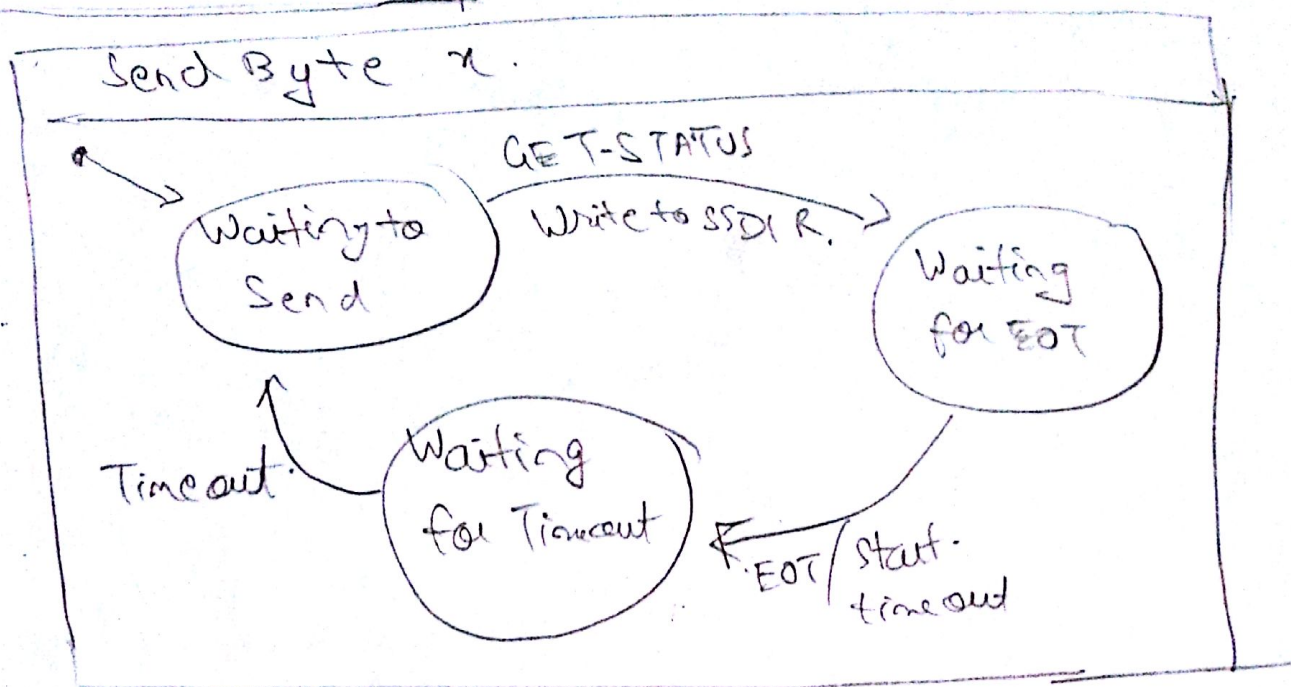 Send Byte x.
GET-STATUS
Write to SSDR.
Waiting to
Send
Waiting
for EOT
Waiting
for Timeout
Timeout.
EOT/Start.
timeout